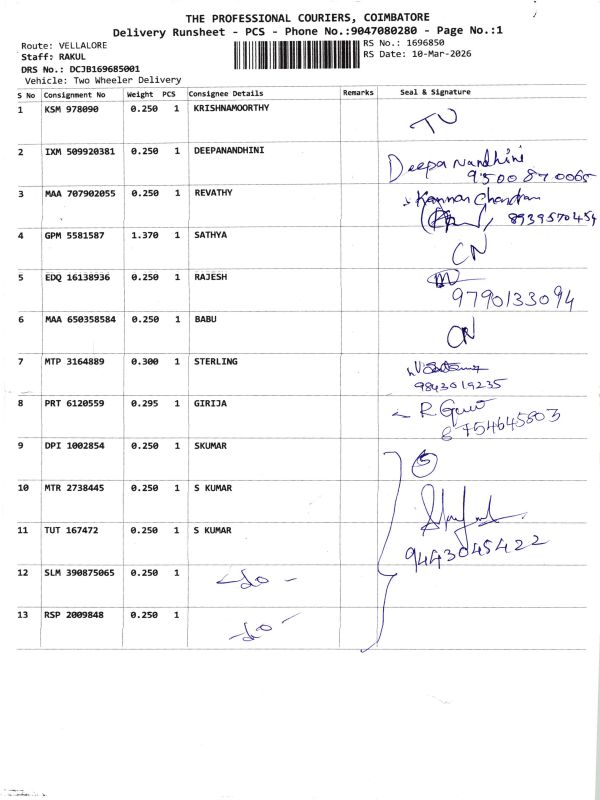 THE PROFESSIONAL COURIERS, COIMBATORE
Delivery Runsheet - PCS - Phone No.:9047080280 - Page No.:1
Route: VELLALORE
RS No.: 1696850
Staff: RAKUL
RS Date: 10-Mar-2026
DRS No.: DCJB169685001
Vehicle: Two Wheeler Delivery
S No Consignment No Weight PCS Consignee Details Remarks Seal & Signature
1 KSM 978090 0.250 1 KRISHNAMOORTHY
2 IXM 509920381 0.250 1 DEEPANANDHINI Deepanandhini
9500870065
3 MAA 707902055 0.250 1 REVATHY
8939570454
4 GPM 5581587 1.370 1 SATHYA CN
5 EDQ 16138936 0.250 1 RAJESH
9790133094
6 MAA 650358584 0.250 1 BABU CN
7 MTP 3164889 0.300 1 STERLING
9843019235
8 PRT 6120559 0.295 1 GIRIJA R
8754645603
9 DPI 1002854 0.250 1 SKUMAR 5
10 MTR 2738445 0.250 1 S KUMAR
11 TUT 167472 0.250 1 S KUMAR
9443045422
12 SLM 390875065 0.250 1 -do-
13 RSP 2009848 0.250 1 -do-